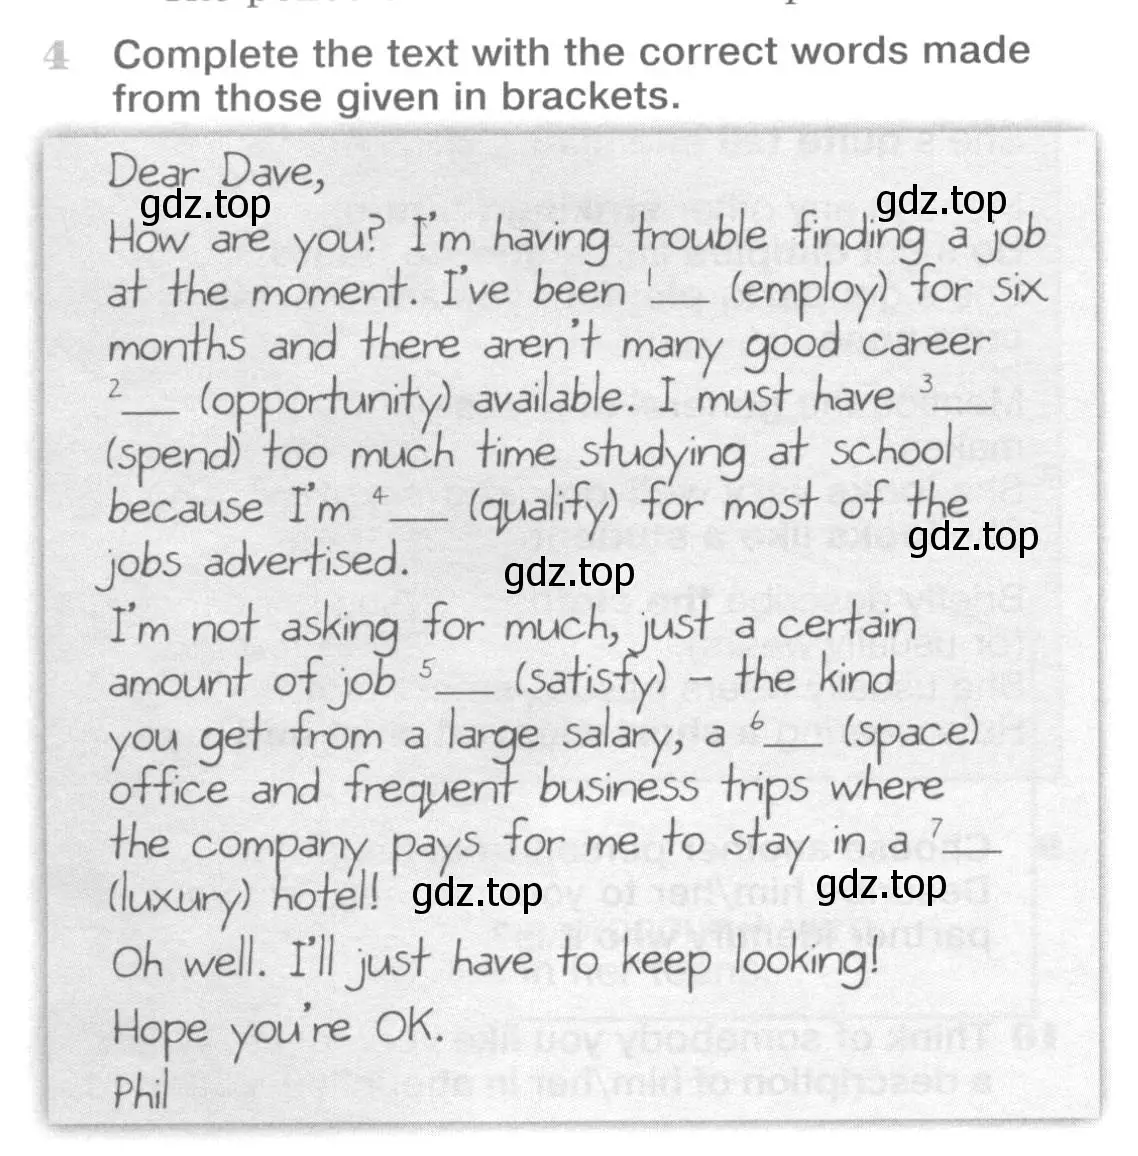 4 Complete the text with the correct words made
from those given in brackets.
Dear Dave,
gdz.top gdz.top
How are you? I'm having trouble finding a job
at the moment. I've been 1__ (employ) for six
months and there aren't many good career
2__ (opportunity) available. I must have 3__
(spend) too much time studying at school
because I'm 4__ (qualify) for most of the
gdz.top
jobs advertised.
gdz.top
I'm not asking for much, just a certain
amount of job 5__ (satisfy) – the kind
you get from a large salary, a 6__ (space)
office and frequent business trips where
the company pays for me to stay in a 7__
(luxury) hotel! gdz.top gdz.top
Oh well. I'll just have to keep looking!
Hope you're OK.
Phil